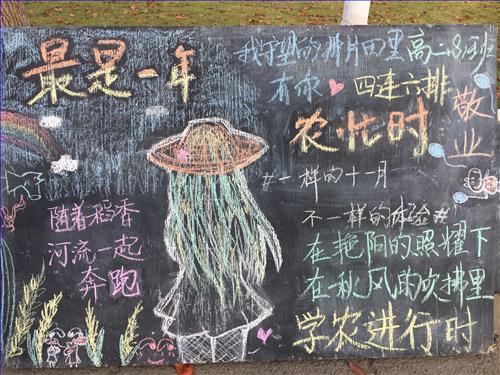 最是一年
农忙时
我守望的那片田里
有你
高二8班
四连六排
敬业
#一样的十一月
不一样的体验#
随着稻香
河流一起
奔跑
在艳阳的照耀下
在秋风的吹拂里
学农进行时